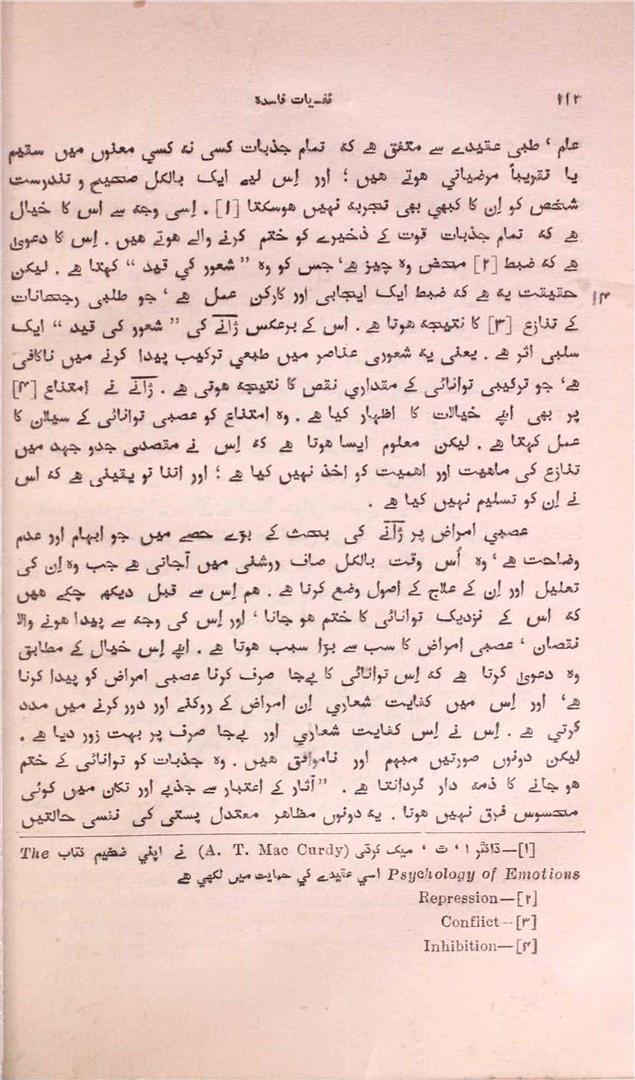 نفسیات فاسدہ ۱۱۲
عام ' طبی عقیدے سے متفق ہے کہ تمام جذبات کسی نہ کسی معنوں میں سقیم
یا تقریباً مرضیاتی ہوتے ہیں ؛ اور اِس لیے ایک بالکل صحیح و تندرست
شخص کو اِن کا کبھی بھی تجربہ نہیں ہوسکتا [۱] . اِسی وجہ سے اس کا خیال
ہے کہ تمام جذبات قوت کے ذخیرے کو ختم کرنے والے ہوتے ہیں . اِس کا دعویٰ
ہے کہ ضبط [۲] محض وہ چیز ہے' جس کو وہ ” شعور کی قید “ کہتا ہے . لیکن
حقیقت یہ ہے کہ ضبط ایک ایجابی اور کارکن عمل ہے ' جو طلبی رجحانات
۱۴
کے تنازع [۳] کا نتیجہ ہوتا ہے . اس کے برعکس ژانے کی ” شعور کی قید “ ایک
سلبی اثر ہے . یعنی یہ شعوری عناصر میں طبعی ترکیب پیدا کرنے میں ناکافی
ہے' جو ترکیبی توانائی کے مقداری نقص کا نتیجہ ہوتی ہے . ژانے نے امتناع [۴]
پر بھی اپنے خیالات کا اظہار کیا ہے . وہ امتناع کو عصبی توانائی کے سیلان کا
عمل کہتا ہے . لیکن معلوم ایسا ہوتا ہے کہ اِس نے مقصدی جدو جہد میں
تنازع کی ماهیت اور اهمیت کو اخذ نہیں کیا ہے ؛ اور اتنا تو یقینی ہے کہ اس
نے اِن کو تسلیم نہیں کیا ہے .
عصبی امراض پر ژانے کی بحث کے بڑے حصے میں جو ابہام اور عدم
وضاحت ہے ' وہ اُس وقت بالکل صاف روشنی میں آجاتی ہے جب وہ اِن کی
تعلیل اور اِن کے علاج کے اصول وضع کرتا ہے . ہم اِس سے قبل دیکھ چکے ہیں
کہ اس کے نزدیک توانائی کا ختم ہو جانا ' اور اِس کی وجہ سے پیدا ہونے والا
نقصان ' عصبی امراض کا سب سے بڑا سبب ہوتا ہے . اپنے اِس خیال کے مطابق
وہ دعویٰ کرتا ہے کہ اِس توانائی کا بےجا صرف کرنا عصبی امراض کو پیدا کرتا
ہے' اور اِس میں کفایت شعاری اِن امراض کے روکنے اور دور کرنے میں مدد
کرتی ہے . اِس نے اِس کفایت شعاری اور بےجا صرف پر بہت زور دیا ہے .
لیکن دونوں صورتیں مبہم اور ناموافق ہیں . وہ جذبات کو توانائی کے ختم
ہو جانے کا ذمہ دار گردانتا ہے . ”آثار کے اعتبار سے جذبے اور تکان میں کوئی
محسوس فرق نہیں ہوتا . یہ دونوں مظاہر معتدل پستی کی نفسی حالتیں
[۱]—ڈاکٹر ا ' ت ' میک کرڈی (A. T. Mac Curdy) نے اپنی ضخیم کتاب The
Psychology of Emotions اسی عقیدے کی حمایت میں لکھی ہے
[۲]—Repression
[۳]—Conflict
[۴]—Inhibition